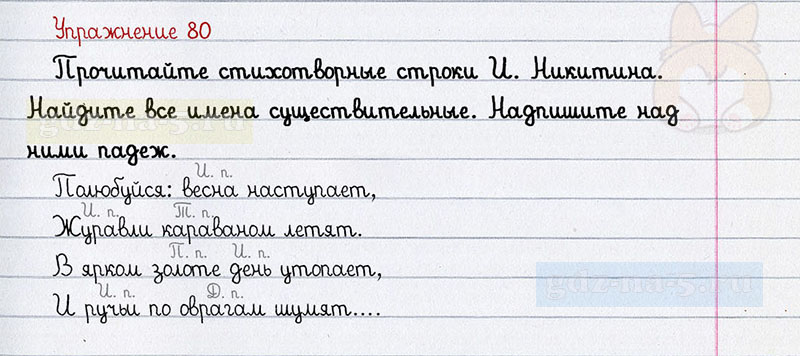 Упражнение 80
Прочитайте стихотворные строки И. Никитина.
Найдите все имена существительные. Надпишите над
ними падеж.
И. п.
Полюбуйся: весна наступает,
И. п. Т. п.
Журавли караваном летят.
П. п. И. п.
В ярком золоте день утопает,
И. п. Д. п.
И ручьи по оврагам шумят....
gdz-na-5.ru
gdz-na-5.ru